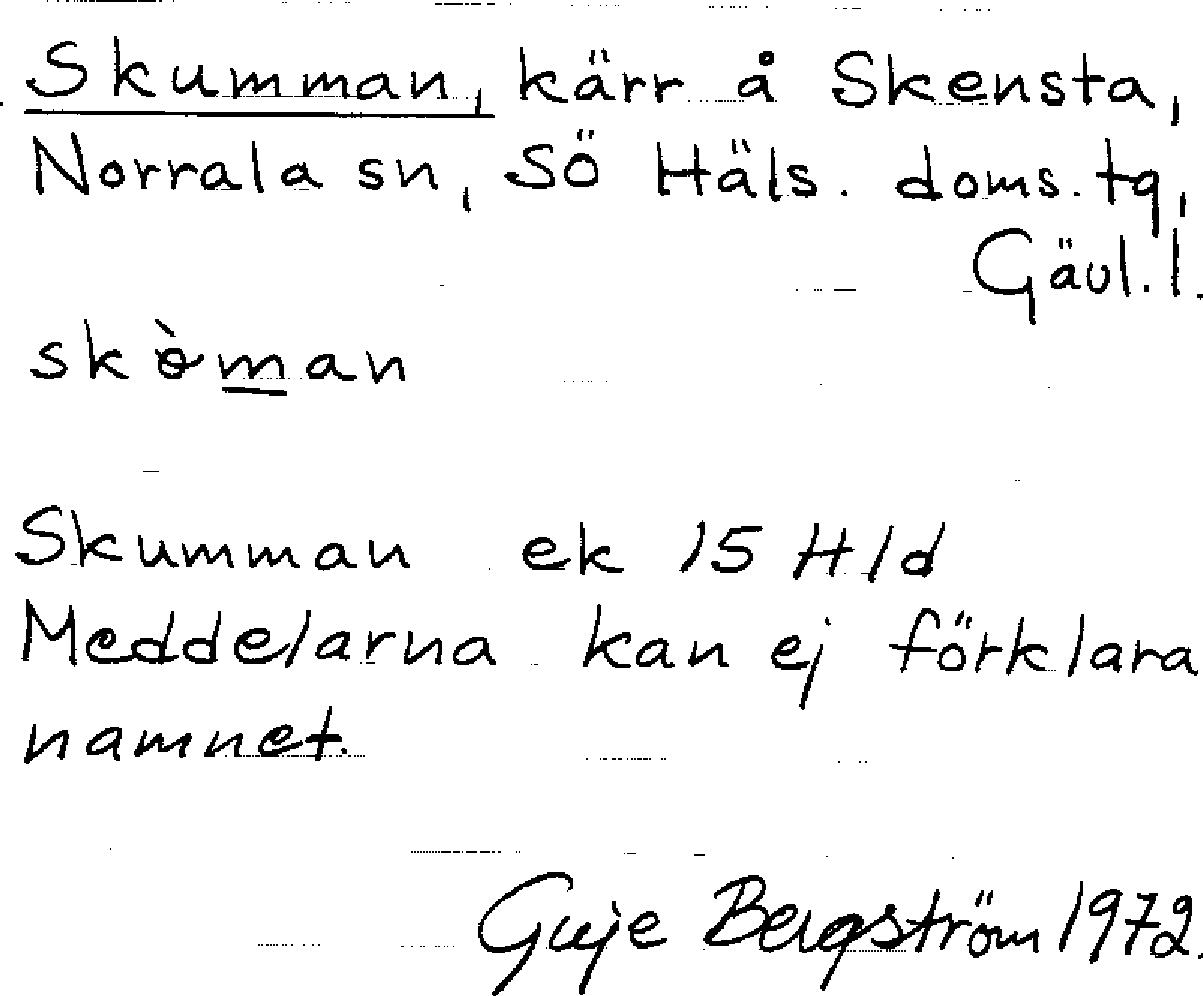 Skumman, kärr å Skensta,
Norrala sn, Sö Häls. doms. tg,
Gävl. l.
skò̵man
Skumman ek 15 H 1d
Meddelarna kan ej förklara
namnet.
Guje Bergström 1972.